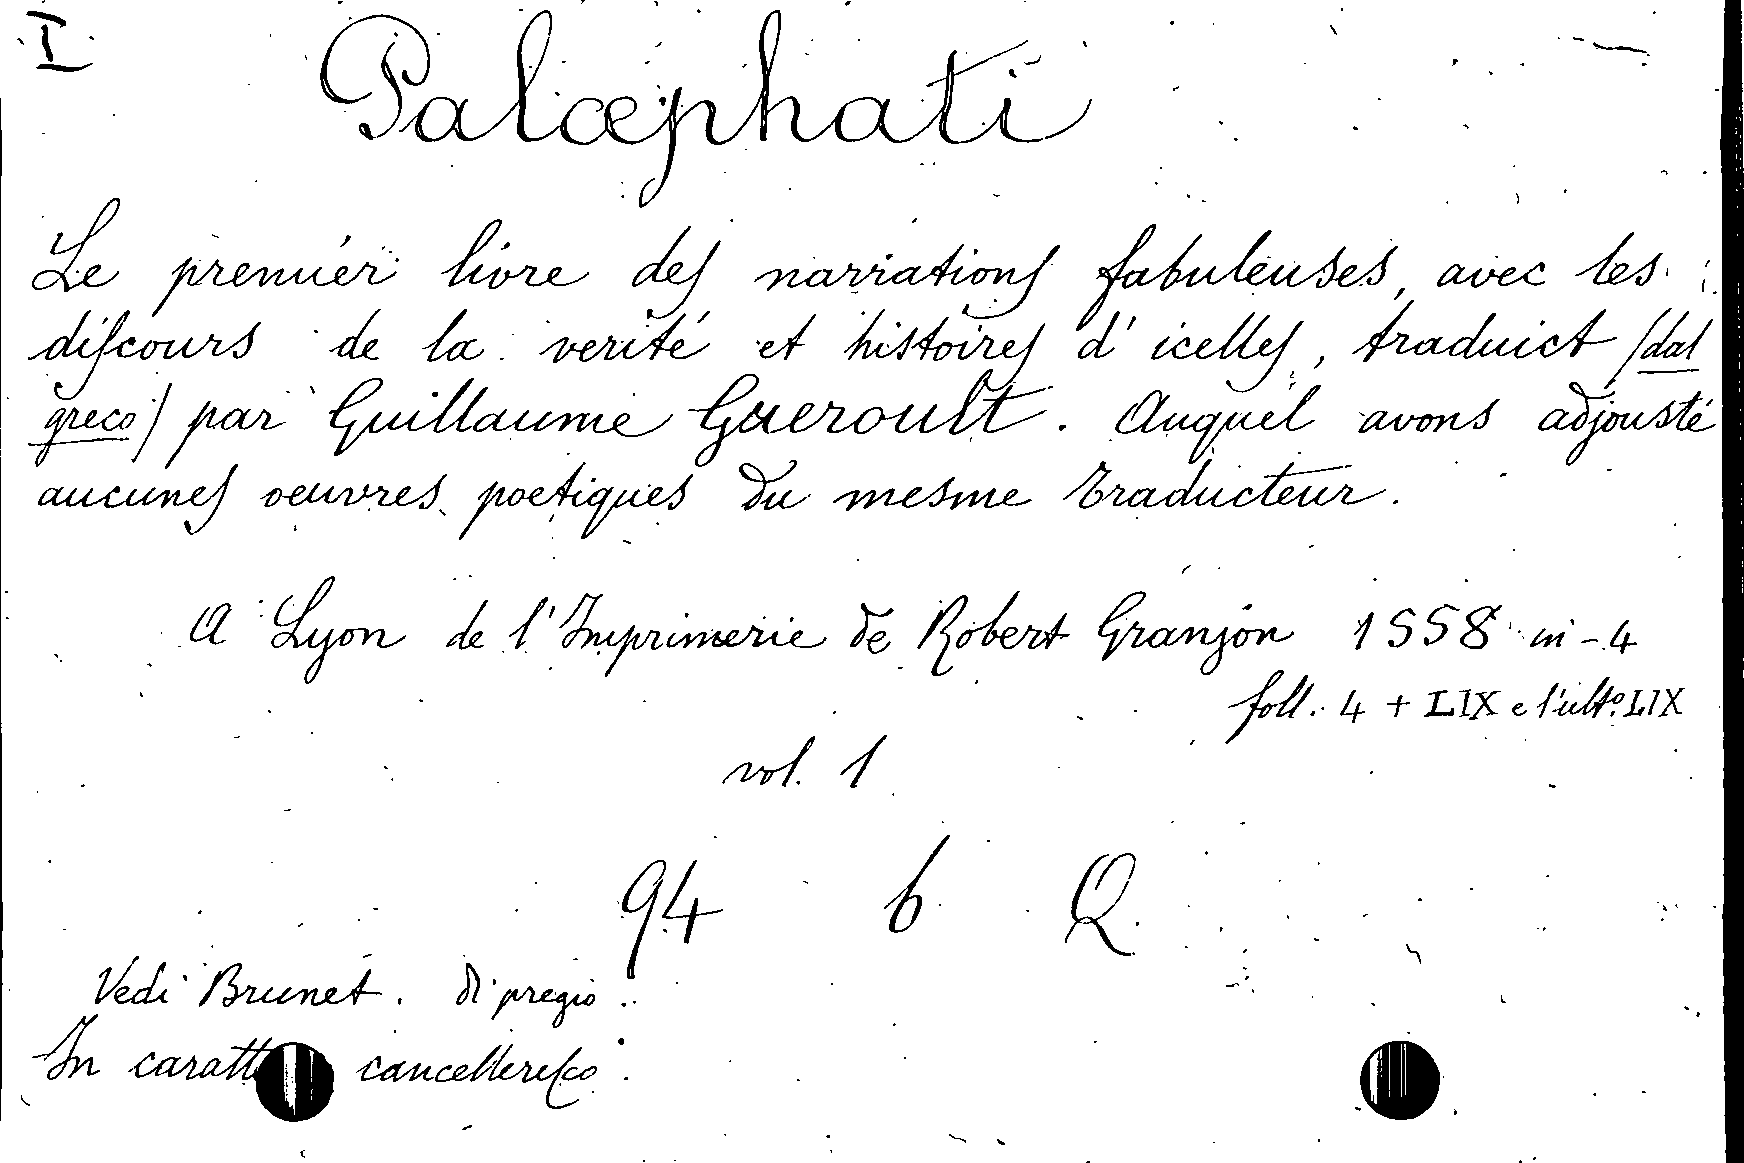 I
Palæphati
Le premier livre des narrations fabuleuses, avec les
discours de la verité et histoires d'icelles, traduict (dal
greco) par Guillaume Gueroult. Auquel avons adjousté
aucunes oeuvres poetiques du mesme traducteur.
A Lyon de l'Imprimerie de Robert Granjon 1558 in-4
foll. 4 + LIX e l'ulto. LIX
vol. 1
94 6 Q
Vedi Brunet. di pregio.
In caratt cancelleresco.